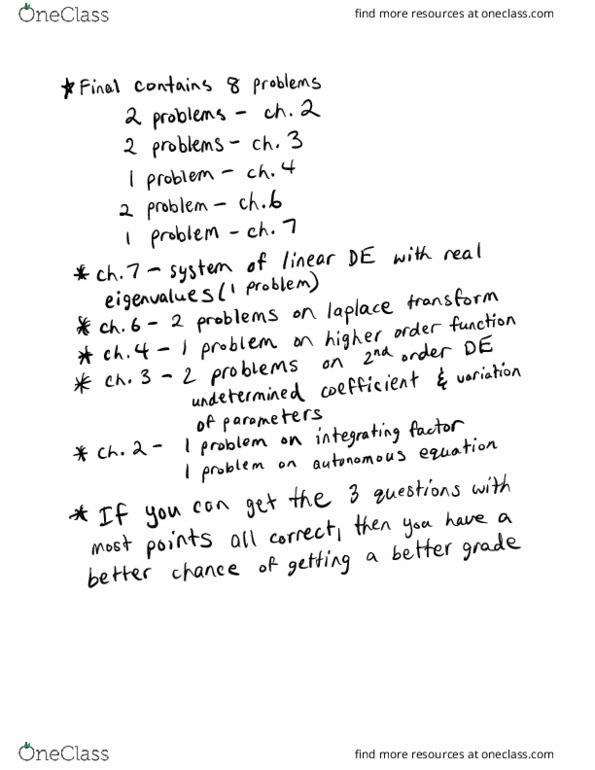 OneClass
find more resources at oneclass.com
* Final contains 8 problems
2 problems - ch. 2
2 problems - ch. 3
1 problem - ch. 4
2 problem - ch. 6
1 problem - ch. 7
* ch. 7 - system of linear DE with real
eigenvalues (1 problem)
* ch. 6 - 2 problems on laplace transform
* ch. 4 - 1 problem on higher order function
* ch. 3 - 2 problems on 2nd order DE
undetermined coefficient & variation
of parameters
* ch. 2 - 1 problem on integrating factor
1 problem on autonomous equation
* If you can get the 3 questions with
most points all correct, then you have a
better chance of getting a better grade
OneClass
find more resources at oneclass.com